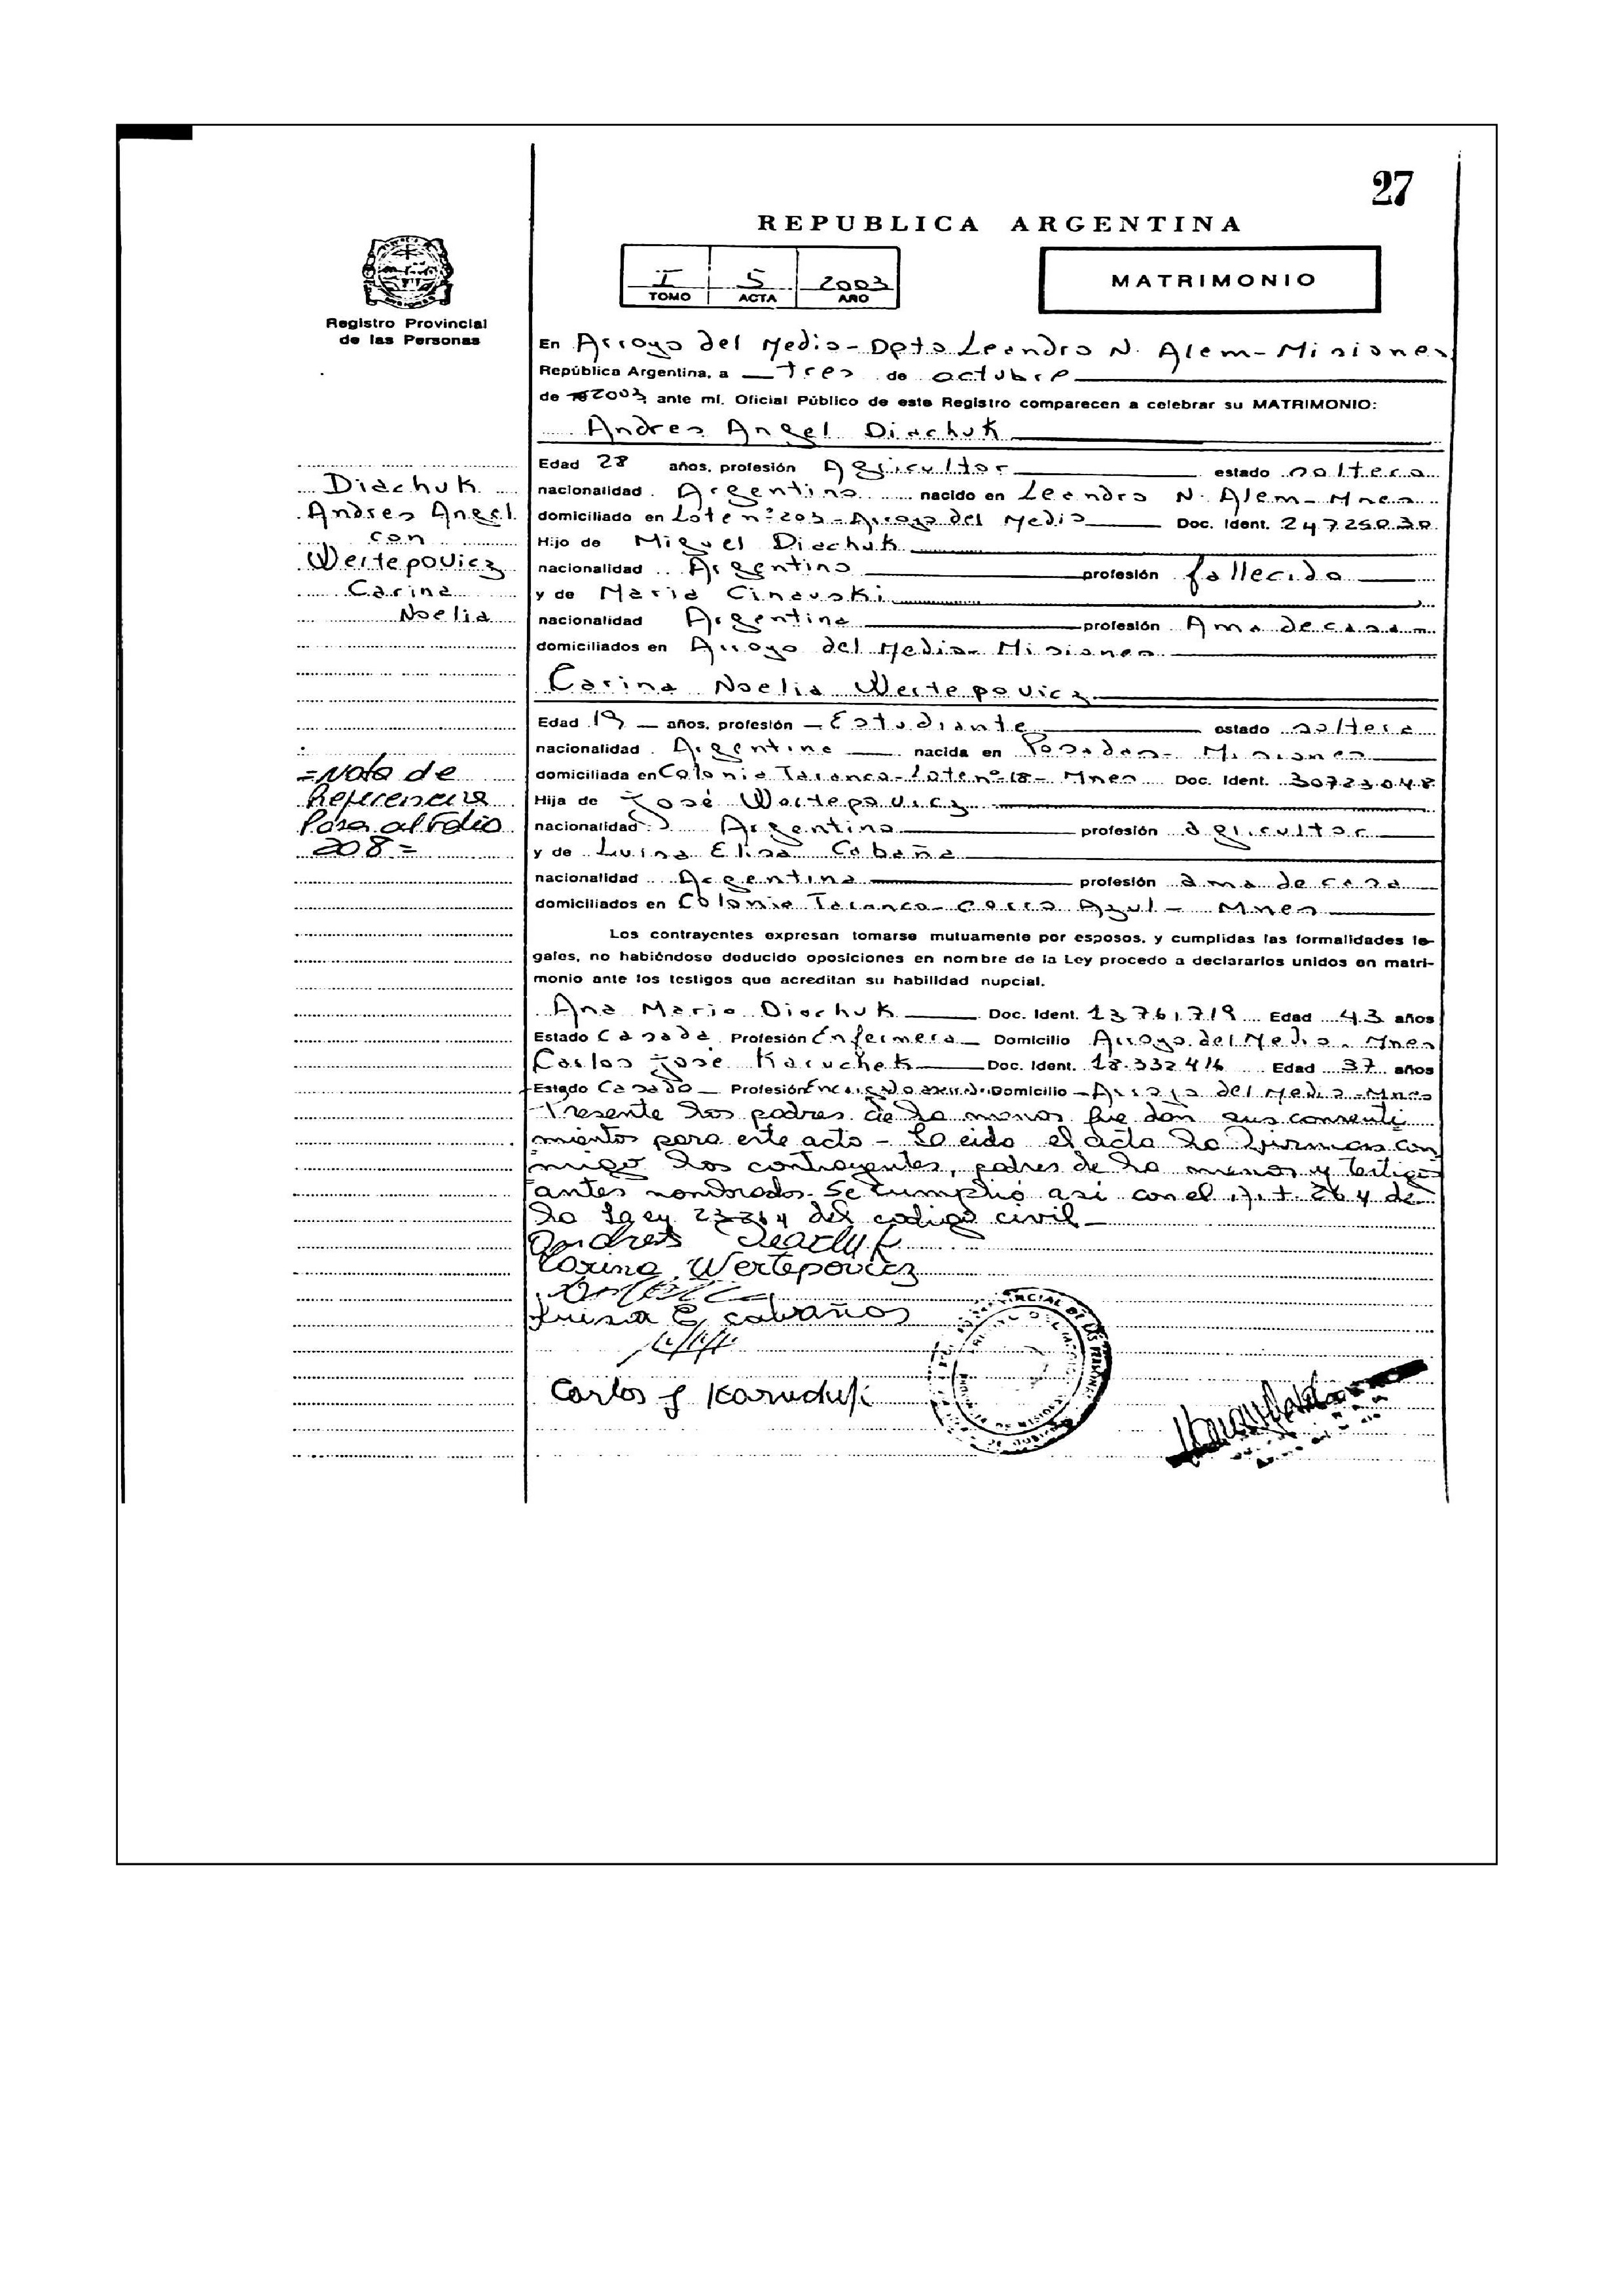 27
REPUBLICA ARGENTINA
I 5 2003
TOMO ACTA AÑO
MATRIMONIO
Registro Provincial
de las Personas
En Arroyo del Medio - Dpto Leandro N. Alem - Misiones
República Argentina, a tres de octubre
de 2003 ante mí, Oficial Público de este Registro comparecen a celebrar su MATRIMONIO:
Andres Angel Diachuk
Edad 28 años, profesión Agricultor estado soltero
nacionalidad Argentino nacido en Leandro N. Alem - Mnes
domiciliado en Lote nº 203 - Arroyo del Medio Doc. Ident. 24725030
Hijo de Miguel Diachuk
nacionalidad Argentino profesión fallecido
y de Maria
nacionalidad Argentina profesión Ama de casa
domiciliados en Arroyo del Medio - Misiones
Carina Noelia Wertepovicz
Edad 19 años, profesión Estudiante estado soltera
nacionalidad Argentina nacida en Posadas - Misiones
domiciliada en Colonia Taranco - Lote nº 18 - Mnes Doc. Ident. 30723048
Hija de José Wertepovicz
nacionalidad Argentino profesión agricultor
y de Luisa Elisa Cabaña
nacionalidad Argentina profesión ama de casa
domiciliados en Colonia Taranco - Cerro Azul - Mnes
Los contrayentes expresan tomarse mutuamente por esposos, y cumplidas las formalidades le-
gales, no habiéndose deducido oposiciones en nombre de la Ley procedo a declararlos unidos en matri-
monio ante los testigos que acreditan su habilidad nupcial.
Ana Maria Diachuk Doc. Ident. 13761719 Edad 43 años
Estado Casada Profesión Enfermera Domicilio Arroyo del Medio - Mnes
Carlos José Karuchek Doc. Ident. 18.332416 Edad 37 años
Estado Casado Profesión Domicilio Arroyo del Medio - Mnes
Presente los padres de la menor que dan sus consenti
mientos para este acto - Leido el acta la firman con
migo los contrayentes, padres de la menor y testigos
antes nombrados. Se cumplió asi con el 264 de
la Ley del codigo civil
Andres
Carina Wertepovicz
Luisa E. cabañas
Carlos J Karuchek
Diachuk
Andres Angel
con
Wertepovicz
Carina
Noelia
=Nota de
Referencia
Pasa al Folio
208=